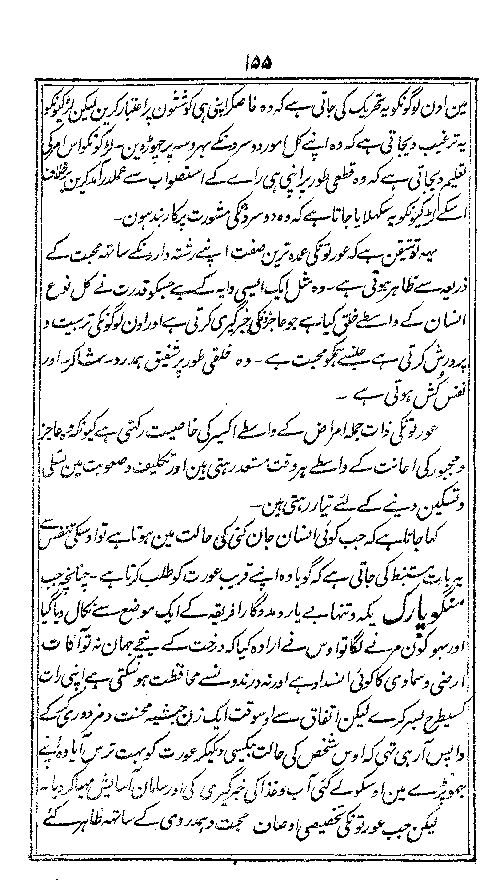 ۱۵۵
مین اون لوگونکو یہ تحریک کی جاتی ہے کہ وہ خاصکر اپنی ہی کوششون پر اعتبار کرین لیکن لڑکیونکو
یہ ترغیب دیجاتی ہے کہ وہ اپنے کل امور دوسرونکے بہروسہ پر چہوڑ دین۔ لڑکونکو اس امر کی
تعلیم دیجاتی ہے کہ وہ قطعی طور پر اپنی ہی راے کے استصواب سے عملدرآمد کرین بخلاف
اسکے لڑکیونکو یہ سکہلایا جاتا ہے کہ وہ دوسرونکی مشورت پر کاربند ہون۔
یہہ تو متیقن ہے کہ عورتونکی عمدہ ترین صفت اپنے رشتہ دارونکے ساتہہ محبت کے
ذریعہ سے ظاہر ہوتی ہے۔ وہ مثل ایک ایسی دایہ کے ہے جسکو قدرت نے کل نوع
انسان کے واسطے خلق کیا ہے جو عاجزونکی خبرگیری کرتی ہے اور اون لوگونکی تربیت و
پرورش کرتی ہے جنسے ہمکو محبت ہے۔ وہ خلقی طور پر شفیق ہمدرد۔ شاکر۔ اور
نفس کُش ہوتی ہے۔
عورتونکی ذات جملہ امراض کے واسطے اکسیر کی خاصیت رکہتی ہے کیونکہ وہ عاجز
و مجبور کی اعانت کے واسطے ہر وقت مستعد رہتی ہین اور تکلیف و صعوبت مین تسلی
و تسکین دینے کے لئے تیار رہتی ہین۔
کہا جاتا ہے کہ جب کوئی انسان جان کنی کی حالت مین ہوتا ہے تو اوسکی تنفس سے
یہ بات مستنبط کی جاتی ہے کہ گویا وہ اپنے قریب عورت کو طلب کرتا ہے۔ چنانچہ جب
منگو پارک یکہ و تنہا بے یار و مددگار افریقہ کے ایک موضع سے نکال دیا گیا
اور بہوکون مرنے لگا تو اوس نے ارادہ کیا کہ درخت کے نیچے جہان نہ تو آفات
ارضی و سماوی کا کوئی انسداد ہے اور نہ درندونسے محافظت ہو سکتی ہے اپنی رات
کسیطرح بسر کرے لیکن اتفاق سے اوسوقت ایک زن حبشیہ محنت و مزدوری کرکے
واپس آ رہی تہی کہ اوس شخص کی حالت بیکسی دیکہکر عورت کو بہت ترس آیا وہ اپنے
جہوپڑے مین اوسکو لے گئی آب و غذا کی خبرگیری کی اور سامان آسایش مہیا کر دیا۔
لیکن جب عورتونکی تخصیصی اوصاف محبت و ہمدردی کے ساتہہ ظاہر کئے